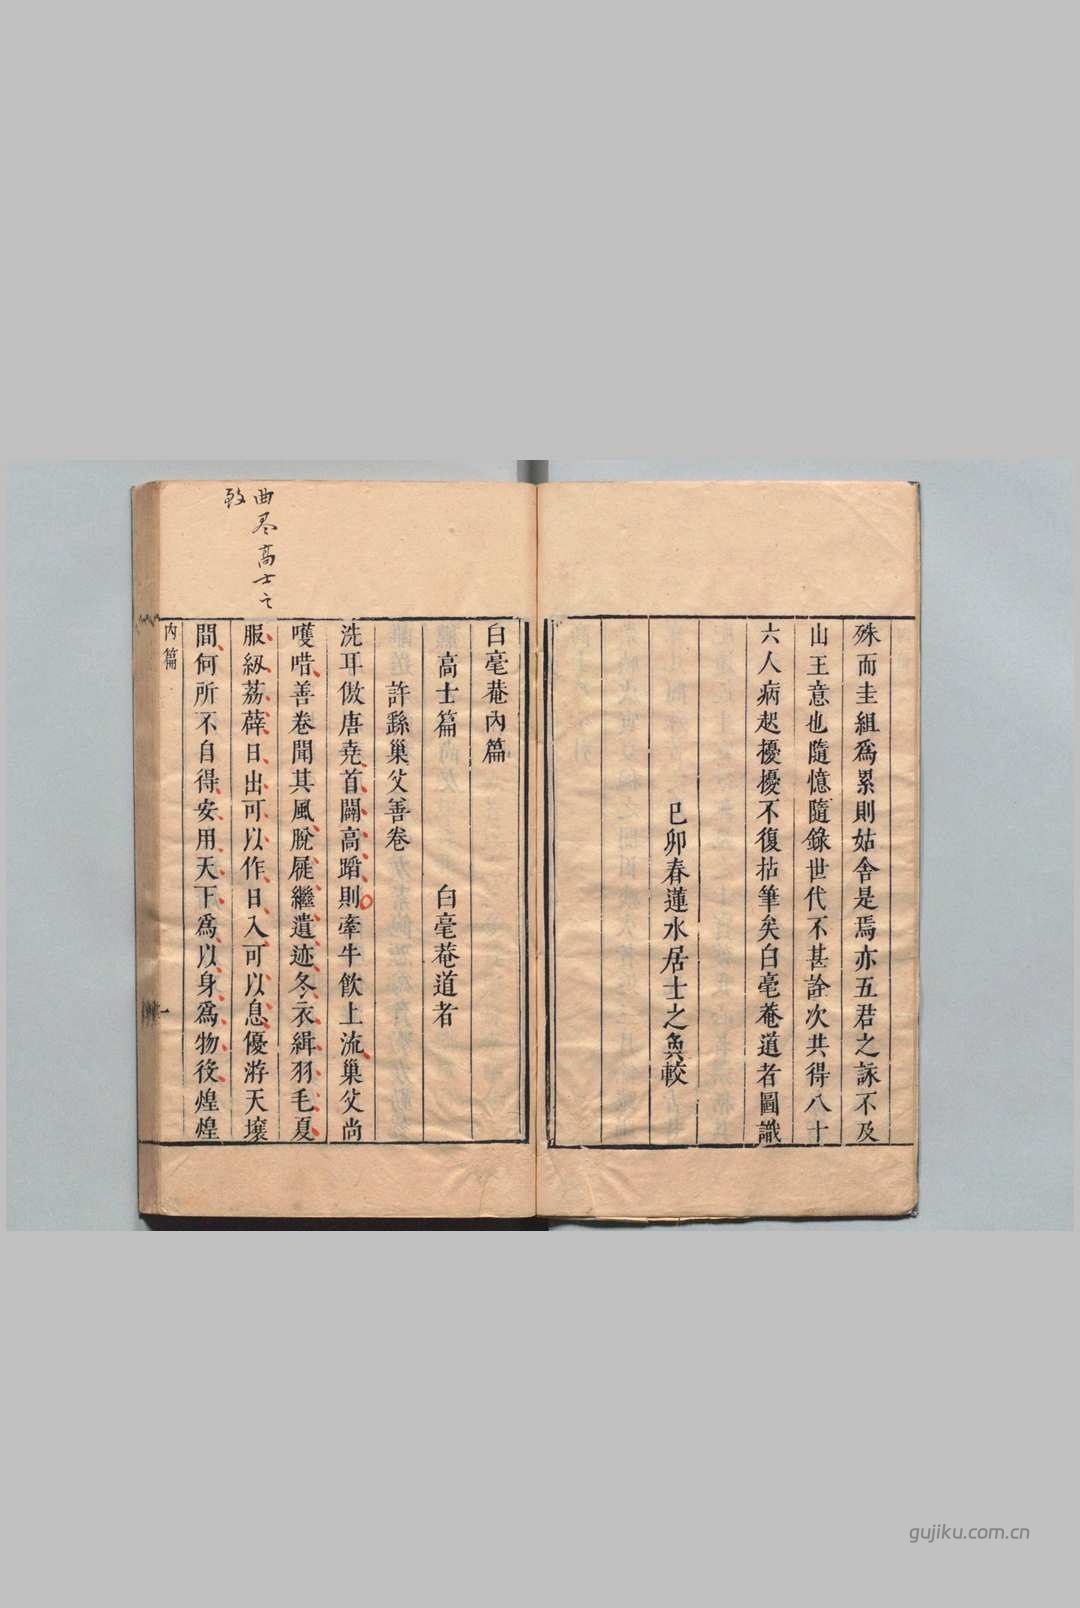 殊而圭組爲累則姑舍是焉亦五君之詠不及
山王意也隨憶隨錄世代不甚詮次共得八十
六人病起擾擾不復拈筆矣白毫菴道者圖識
己卯春蓮水居士之奐較
白毫菴內篇
高士篇 白毫菴道者
許繇巢父善卷
洗耳傲唐堯首闢高蹈則牽牛飲上流巢父尚
嚄唶善卷聞其風脫屣繼遺迹冬衣緝羽毛夏
服紉荔薜日出可以作日入可以息優游天壤
間何所不自得安用天下爲以身爲物後煌煌
內篇
一
曲尽高士之
致
gujiku.com.cn